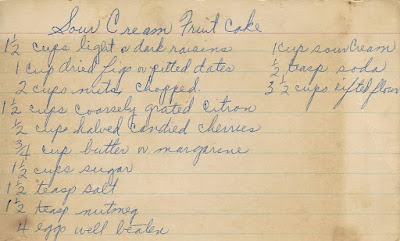 Sour Cream Fruit Cake
1 1/2 cups light or dark raisens
1 cup dried figs or pitted dates
2 cups nuts, chopped.
1 1/2 cups coarsely grated citron
1/2 cup halved candied cherries
3/4 cup butter or margarine
1 1/2 cups sugar
1 1/2 teasp salt
1 1/2 teasp nutmeg
4 eggs well beaten
1 cup sour cream
1/2 teasp soda
3 1/2 cups sifted flour